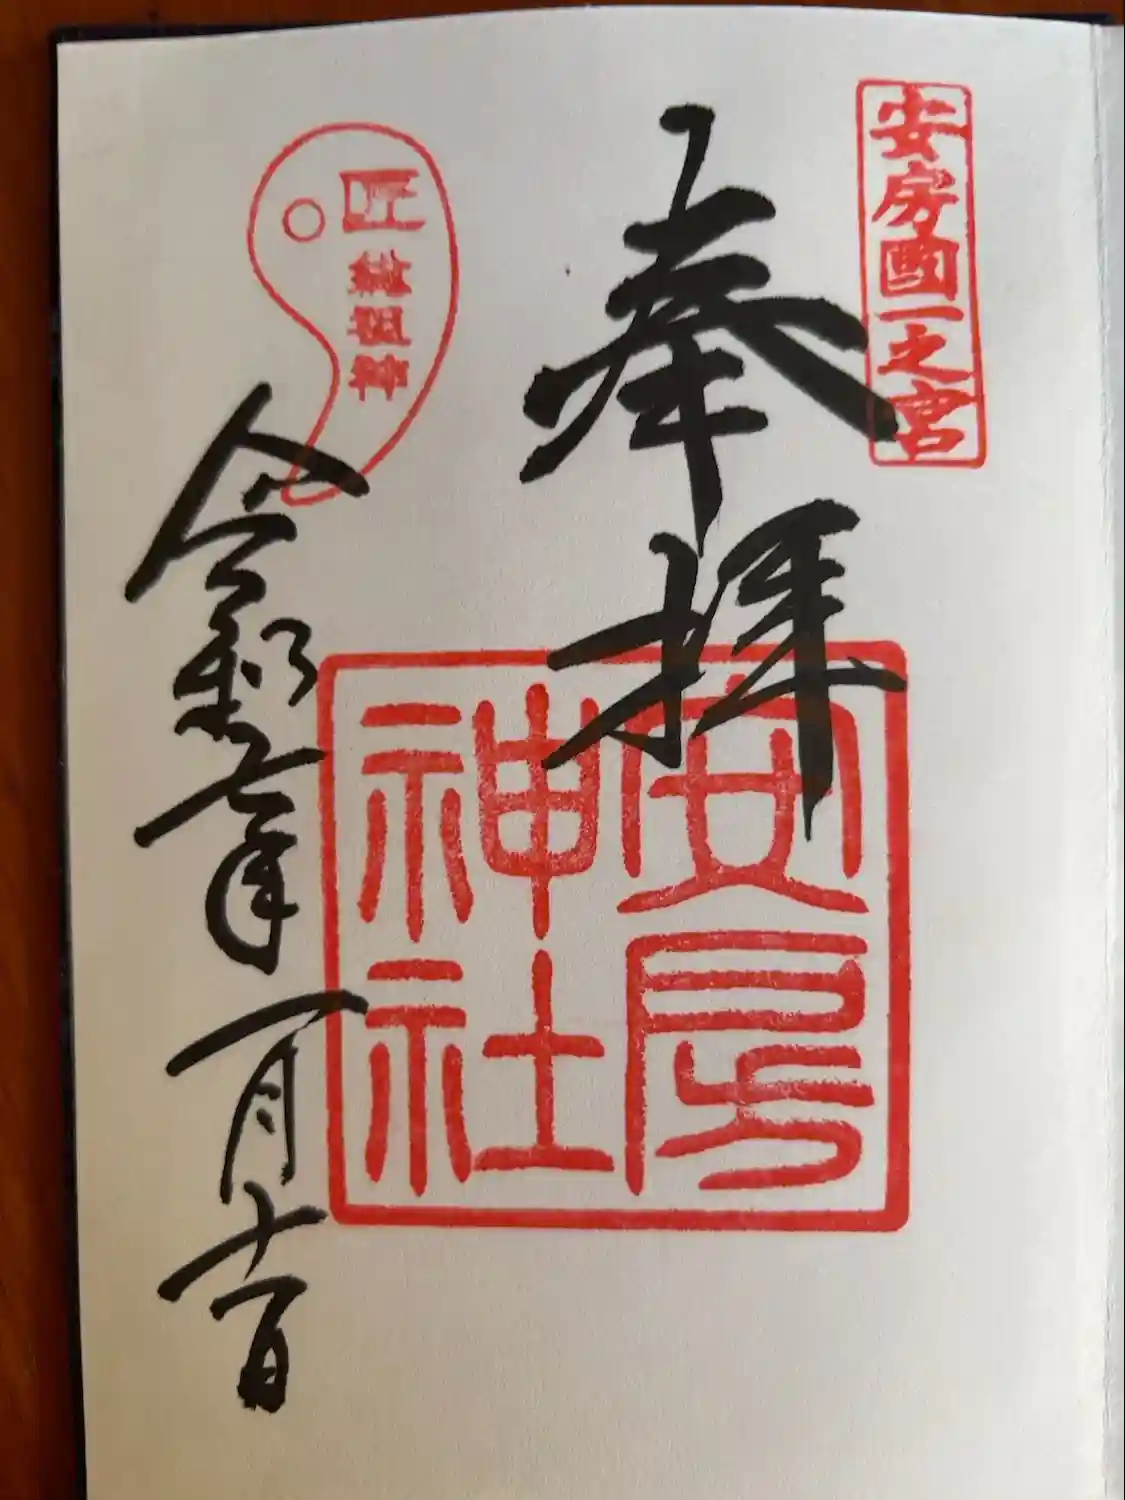 安房國一之宮
奉拝
安房
神社
匠 總祖神
令和七年一月十一日